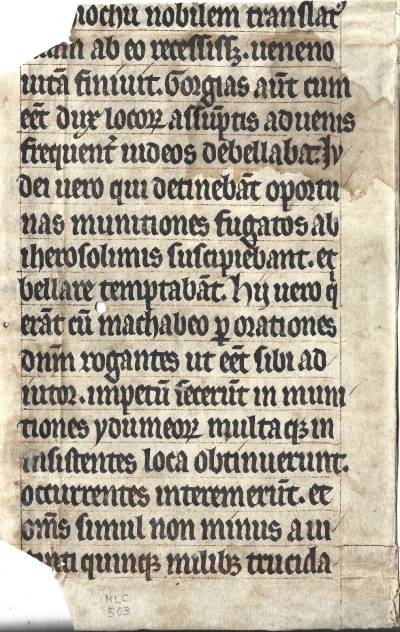 iochu nobilem translat᷒
ab eo recessissꝫ. ueneno
uitā finiuit. Gorgias aūt cum
eēt dux locoꝝ assūptis aduenis
frequent̄ iudeos debellabat. Iu
dei uero qui detinebāt oportu
nas munitiones fugatos ab
iherosolimis suscipiebant. et
bellare temptabāt. Hij uero q̇
erāt cū machabeo ꝑ orationes
dn̄m rogantes ut eēt sibi ad
iutor. impetū fecerūt in muni
tiones ydumeoꝝ multaqꝫ in
insistentes loca obtinuerunt.
occurrentes interemerūt. et
om̄s simul non minus a ui
ginti quinqꝫ milibꝫ trucida
MLC
503